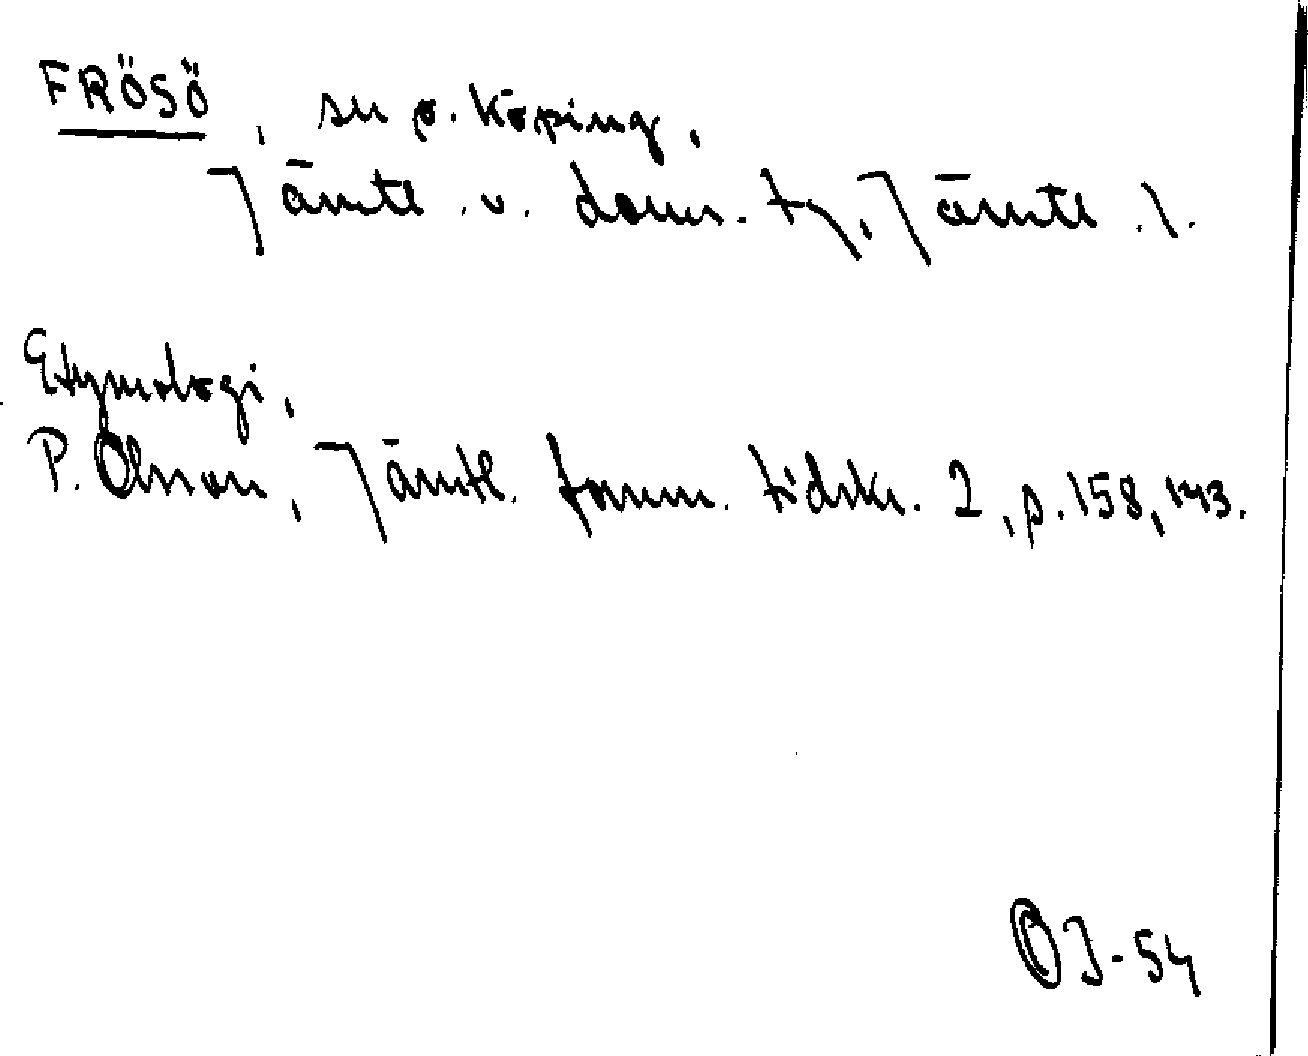 FRÖSÖ, sn o. köping,
Jämtl. v. doms. tg, Jämtl. l.
Etymologi,
P. Olsson, Jämtl. fornm. tidskr. 2, p. 158, 143.
OJ-54